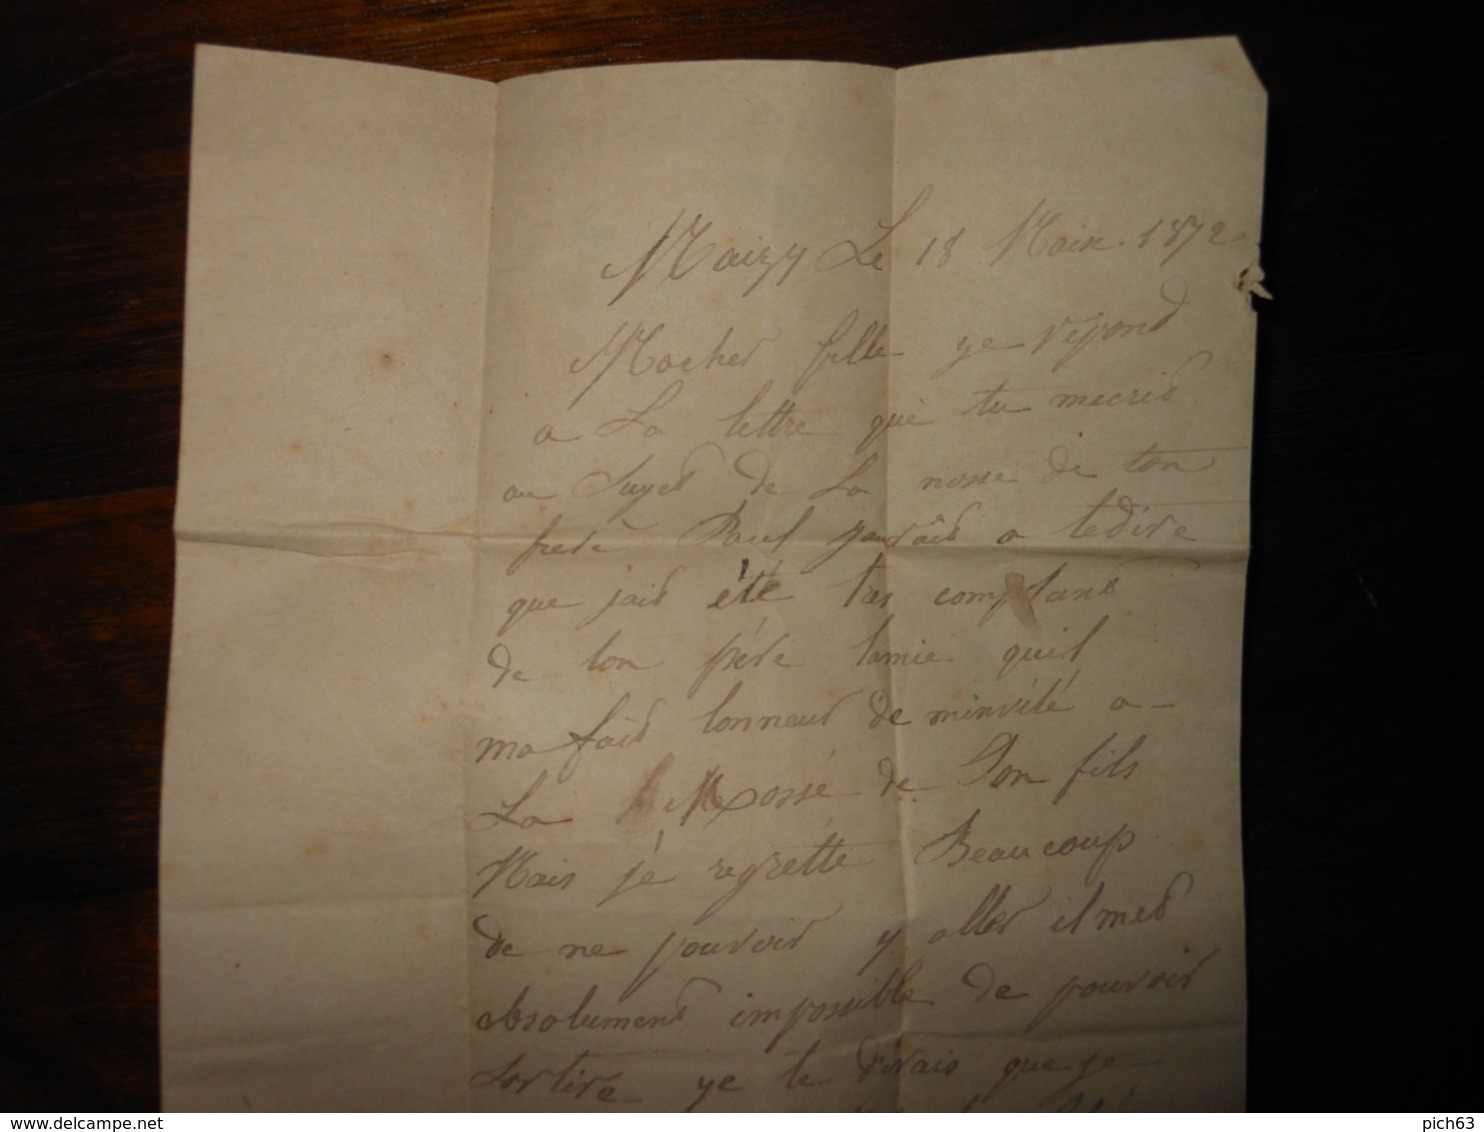 Maizy Le 18 Maix 1872
Macher fille ye répond
a La lettre que tu mecrid
au Suged de La nosse de ton
frere Paul jaurâid a tedire
que jaid été tres compland
de ton pére lamie quil
ma faid lonneur de minvité a
La Nossé de Son fils
Mais jé regrétte Beaucoup
de ne pouvoir y aller il med
absolumend impossible de pouvoir
sortire ye te dirais que ye
delcampe.net
pich63